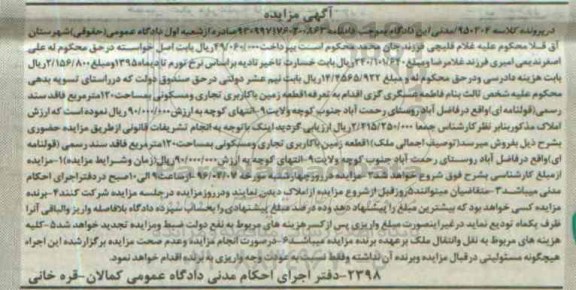 آگهی مزایده
در پرونده کلاسه ۹۵۰۳۰۴/مدنی این دادگاه بموجب دادنامه صادره از شعبه اول دادگاه عمومی(حقوقی)شهرستان
آق قلا محکوم علیه غلام قلیچی فرزند جان محمد محکوم است بپرداخت ریال بابت اصل خواسته در حق محکوم له علی
اصغر ندیمی امیری فرزند غلامرضا ومبلغ ریال بابت خسارت تاخیر تادیه براساس نرخ تورم تا دیماه۱۳۹۵ومبلغ۲/۱۵۶/۸۰۰ریال
بابت هزینه دادرسی ودر حق محکوم له و مبلغ ریال بابت نیم عشر دولتی در حق صندوق دولت که درراستای تسویه بدهی
محکوم علیه شخص ثالث بنام فاطمه سنگری گزی اقدام به تعرفه۱قطعه زمین باکاربری تجاری ومسکونی بمساحت۱۲۰مترمربع فاقد سند
رسمی(قولنامه ای)واقع درفاضل آباد روستای رحمت آباد جنوب کوچه ولایت۹-انتهای کوچه به ارزش۹۰/۰۰۰/۰۰۰ریال نموده است که ارزش
املاک مذکوربنابر نظر کارشناس جمعا ریال ارزیابی گردید اینک باتوجه به انجام تشریفات قانونی ازطریق مزایده حضوری
بشرح ذیل بفروش میرسد(توصیف اجمالی ملک)۱قطعه زمین باکاربری تجاری ومسکونی بمساحت۱۲۰مترمربع فاقد سند رسمی (قولنامه
ای)واقع درفاضل آباد روستای رحمت آباد جنوب کوچه ولایت۹ انتهای کوچه به ارزش۹۰/۰۰۰/۰۰۰ریال(زمان وشرایط مزایده)۱-مزایده
از مبلغ کارشناسی بشرح فوق شروع خواهد شد۲-مزایده در روز چهارشنبه ازساعت۹الی۱۰صبح دردفتراجرای احکام
مدنی میباشد۳-متقاضیان میتوانند۵روزقبل از شروع مزایده ازاملاک دیدن نمایند ودرروزمزایده درجلسه مزایده شرکت کنند۴-برنده
مزایده کسی خواهد بود که بیشترین مبلغ را پیشنهاد دهد وده درصد مبلغ پیشنهادی را بحساب سپرده دادگاه بلافاصله واریز والباقی آنرا
ظرف یکماه تودیع نماید در غیراینصورت مبلغ واریزی پس از کسرهزینه های مربوط به نفع دولت ضبط ومزایده تجدید خواهد شد۵-کلیه
هزینه های مربوط به نقل وانتقال ملک برعهده برنده مزایده میباشد۶-درصورت انجام مزایده وعدم صحت مزایده برگزارشده این اجراء
هیچگونه مسئولیتی در قبال مزایده وبرنده آن نداشته وفقط نسبت به عودت وجه واریزی به برنده اقدام خواهد نمود.
۲۳۹۸-دفتر اجرای احکام مدنی دادگاه عمومی کمالان-قره خانی